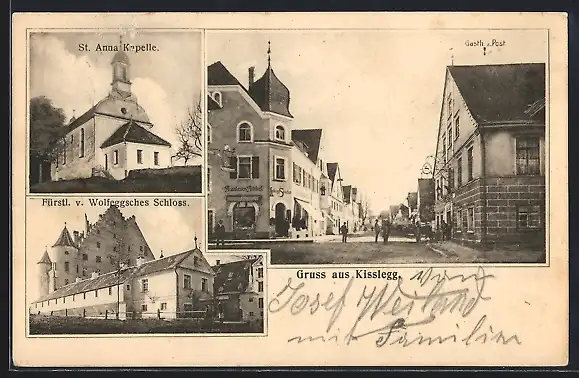 St. Anna Kapelle.
Gasth. z. Post
Fürstl. v. Wolfeggsches Schloss.
Gruss aus Kisslegg. von
Josef Weiland
mit Familien